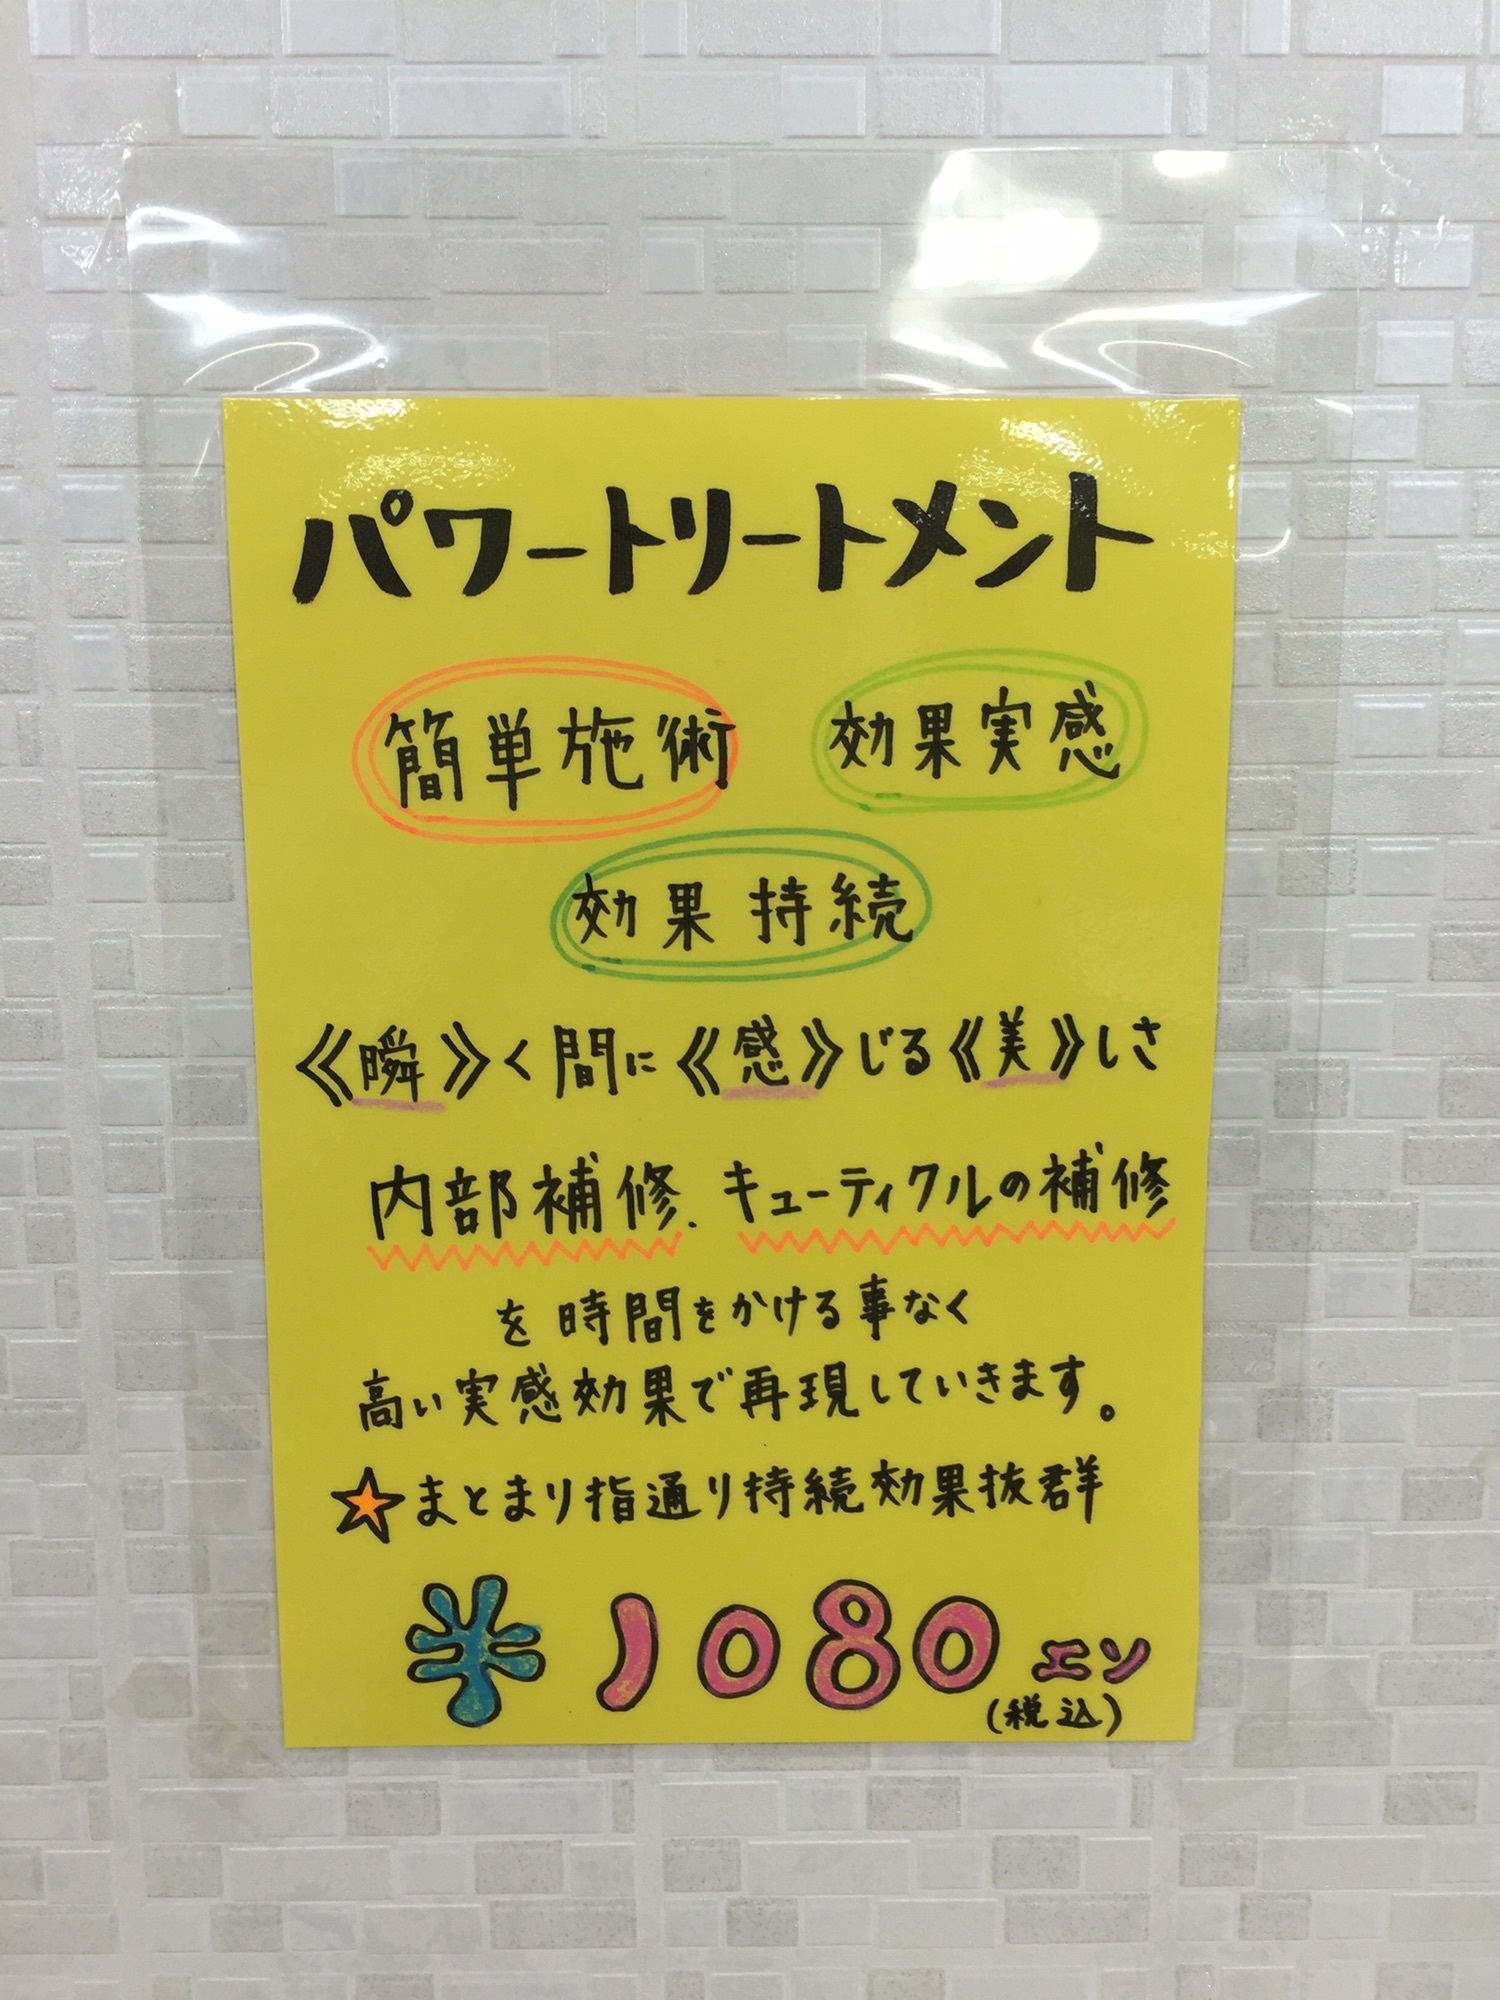 パワートリートメント
簡単施術 効果実感
効果持続
《瞬》く間に《感》じる《美》しさ
内部補修、キューティクルの補修
を時間をかける事なく
高い実感効果で再現していきます。
☆まとまり指通り持続効果抜群
¥1080エン
(税込)